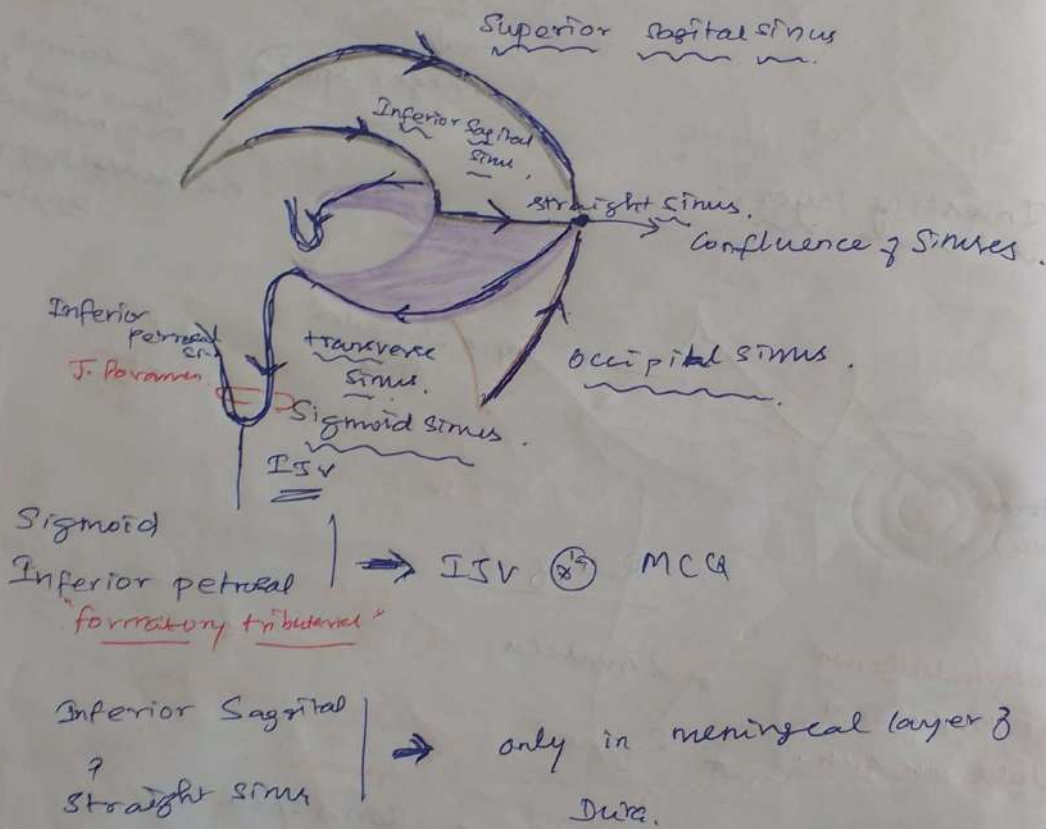 Superior Sagital sinus
Inferior Sagital
Sinus.
Straight Sinus.
Confluence of Sinuses.
Inferior
petrosal
J. Foramen
transverse
Sinus.
occipital sinus.
Sigmoid sinus.
IJV
Sigmoid
Inferior petrosal
→ IJV MCQ
"formatory tributaries"
Inferior Saggital
&
Straight sinus
→ only in meningeal layer of
Dura.